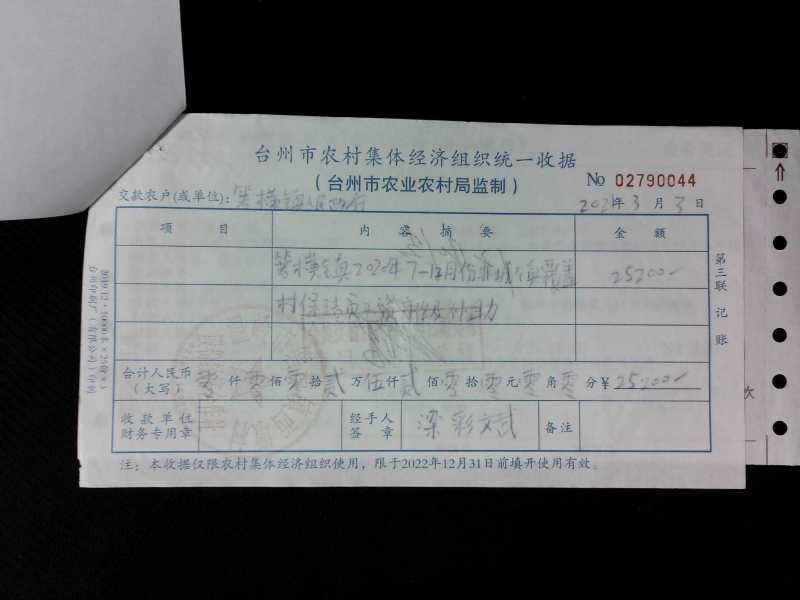 台州市农村集体经济组织统一收据
(台州市农业农村局监制)
No 02790044
交款农户(或单位):箬横镇人民政府
2021年3月3日
项目 内容摘要 金额
箬横镇2020年7-12月份非城镇覆盖 25200-
村保洁员工资
补助
合计人民币
(大写) 零仟零佰零拾贰万伍仟贰佰零拾零元零角零分¥25200-
收款单位
财务专用章
经手人
签章
梁彩文
备注
注:本收据仅限农村集体经济组织使用,限于2022年12月31日前填开使用有效。
第三联 记账
次